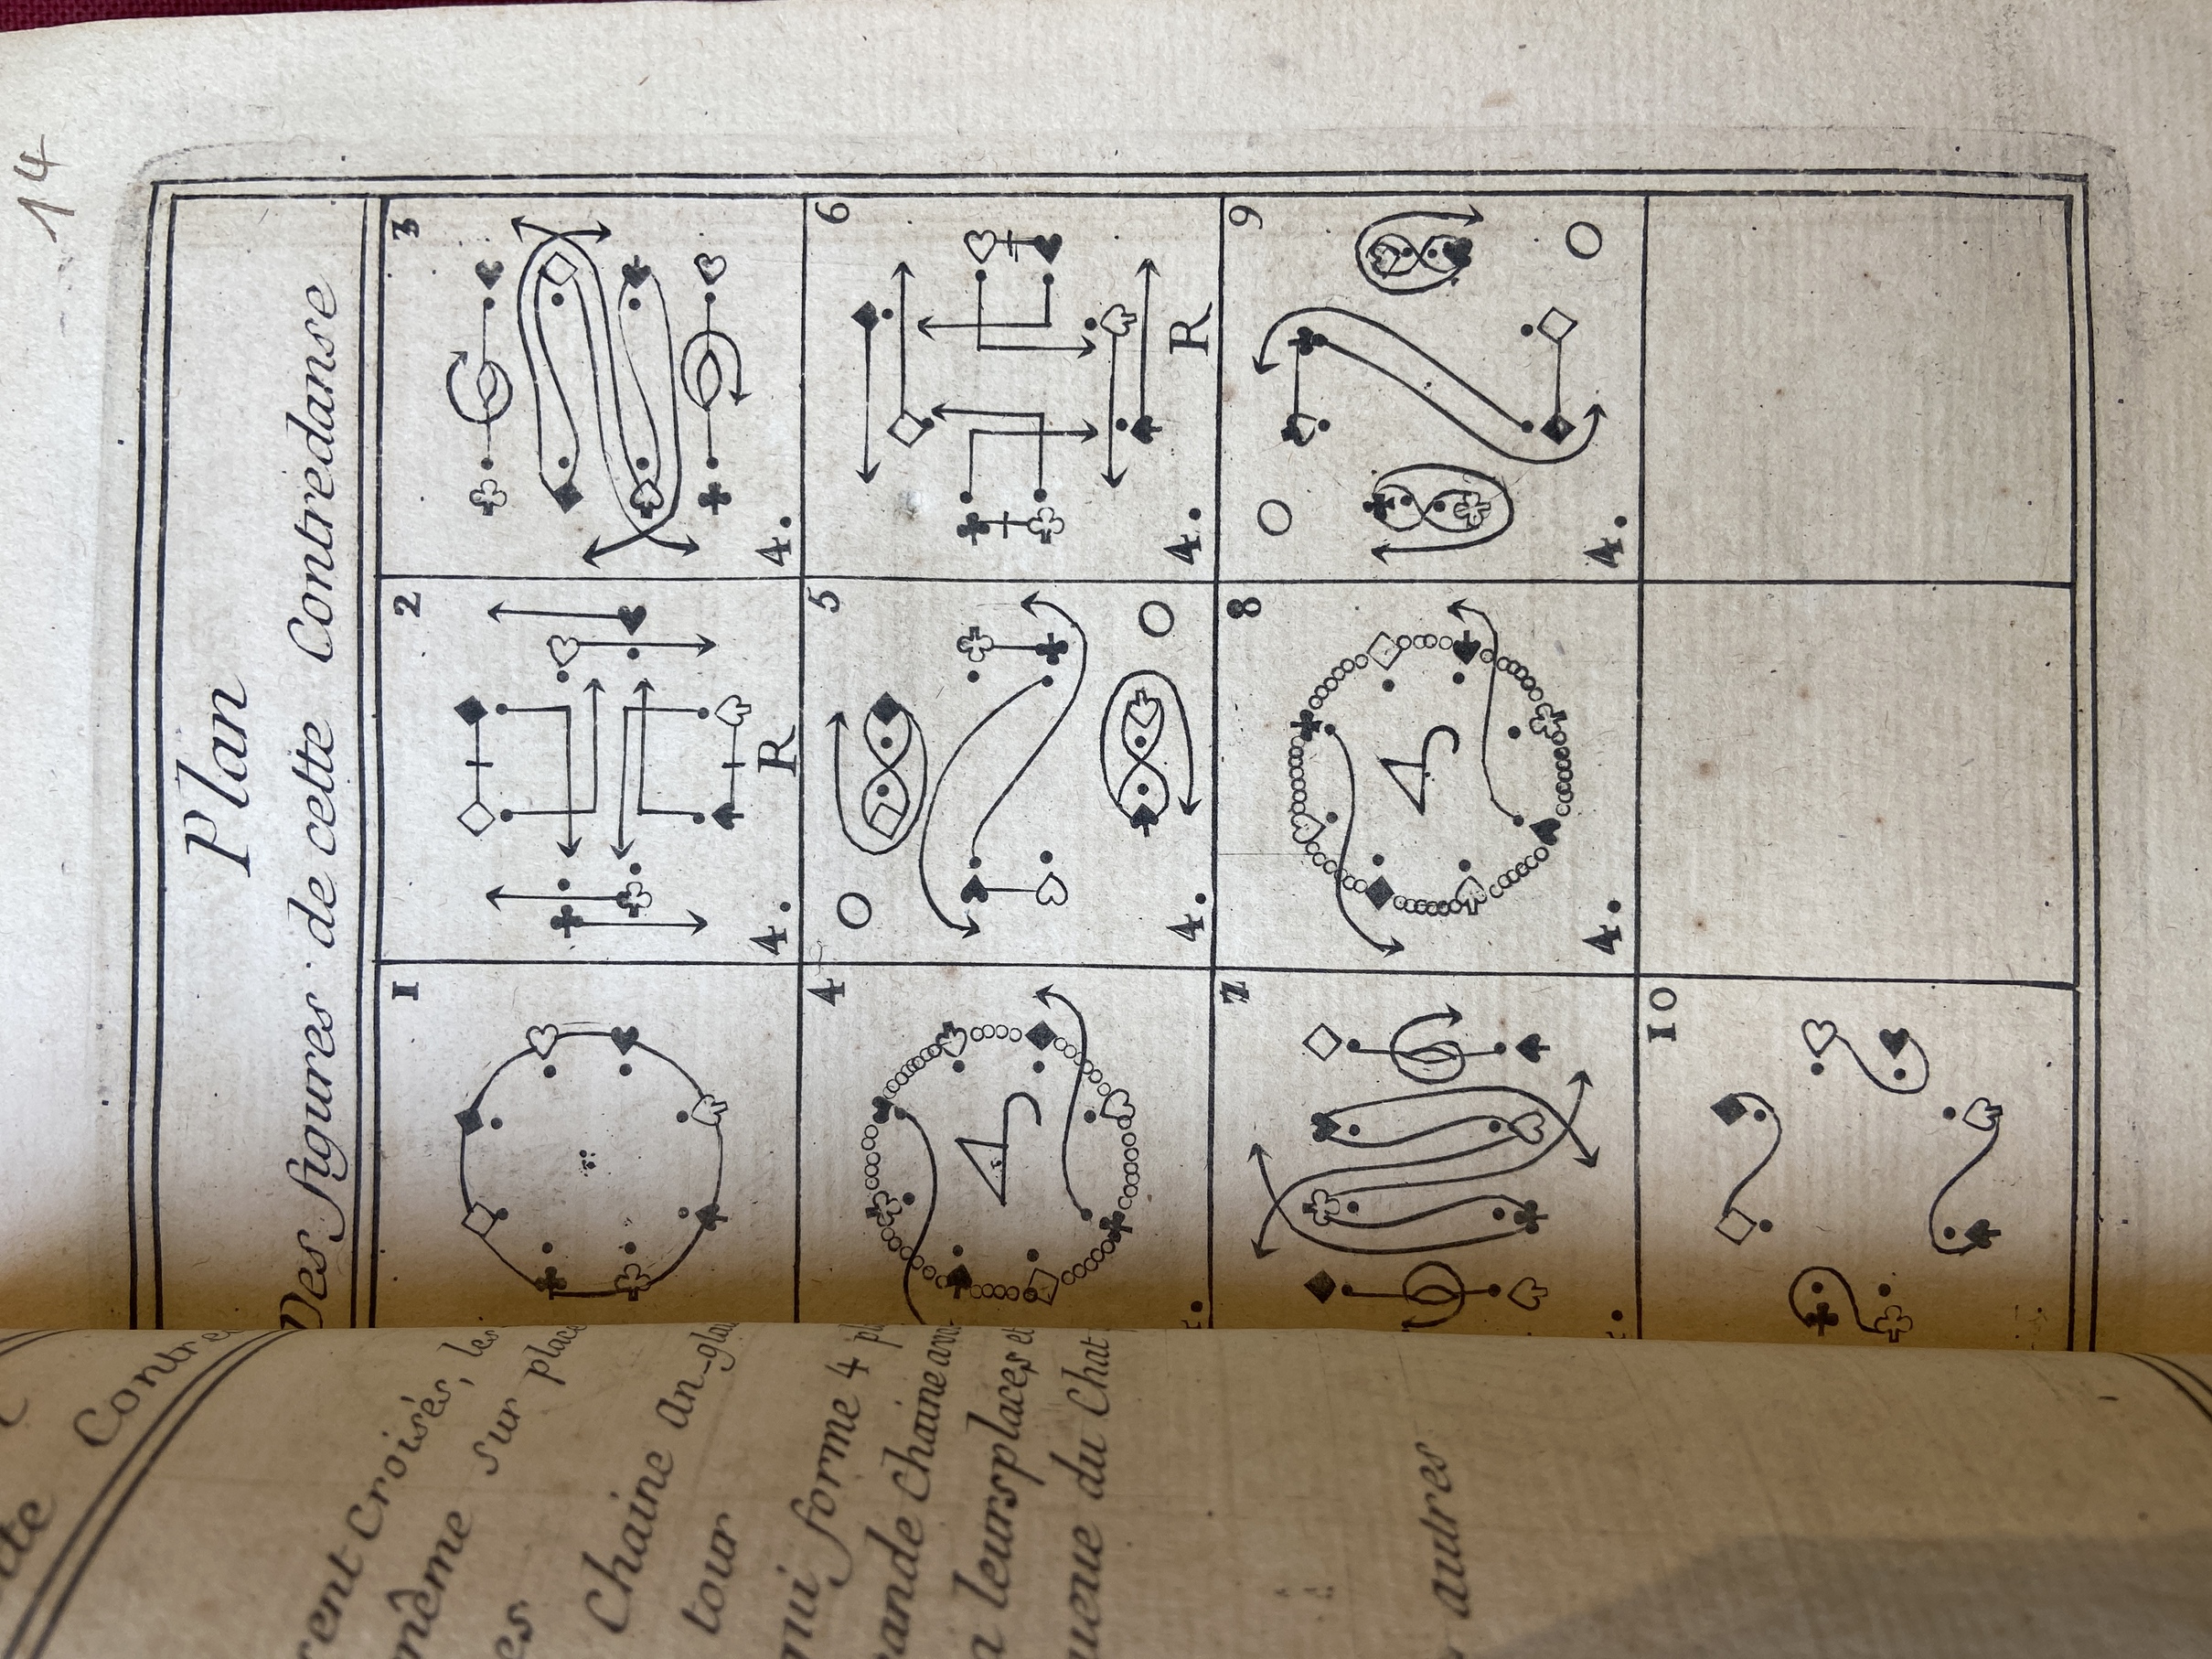 14
Plan
Des figures de cette Contredanse
1
2
4.
R
3
4.
4
4
5
4.
6
4.
R
7
8
4
4.
9
4.
10
Contre
Croisés, les
sur place
es
Chaine an-glai
tour
forme 4 pl
Chaine
leurs places et
du Chat
autres